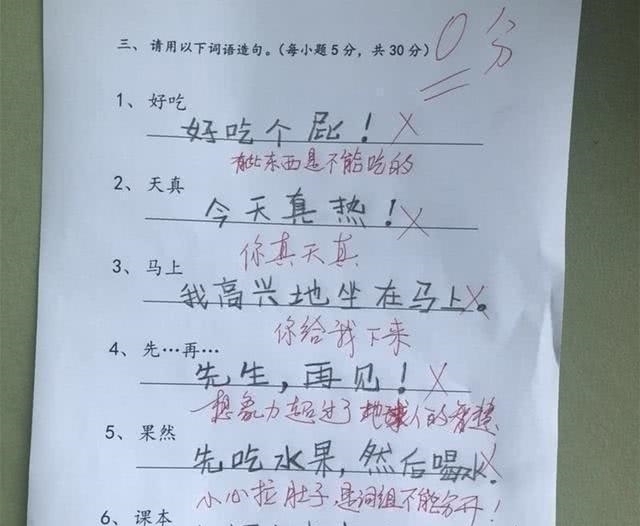 三、请用以下词语造句。(每小题5分，共30分) 0分
1、好吃
好吃个屁！
有些东西是不能吃的
2、天真
今天真热！
你真天真
3、马上
我高兴地坐在马上。
你给我下来
4、先…再…
先生，再见！
想象力超过了地球人的智慧
5、果然
先吃水果，然后喝水.
小心拉肚子,是词组不能分开！
6、课本